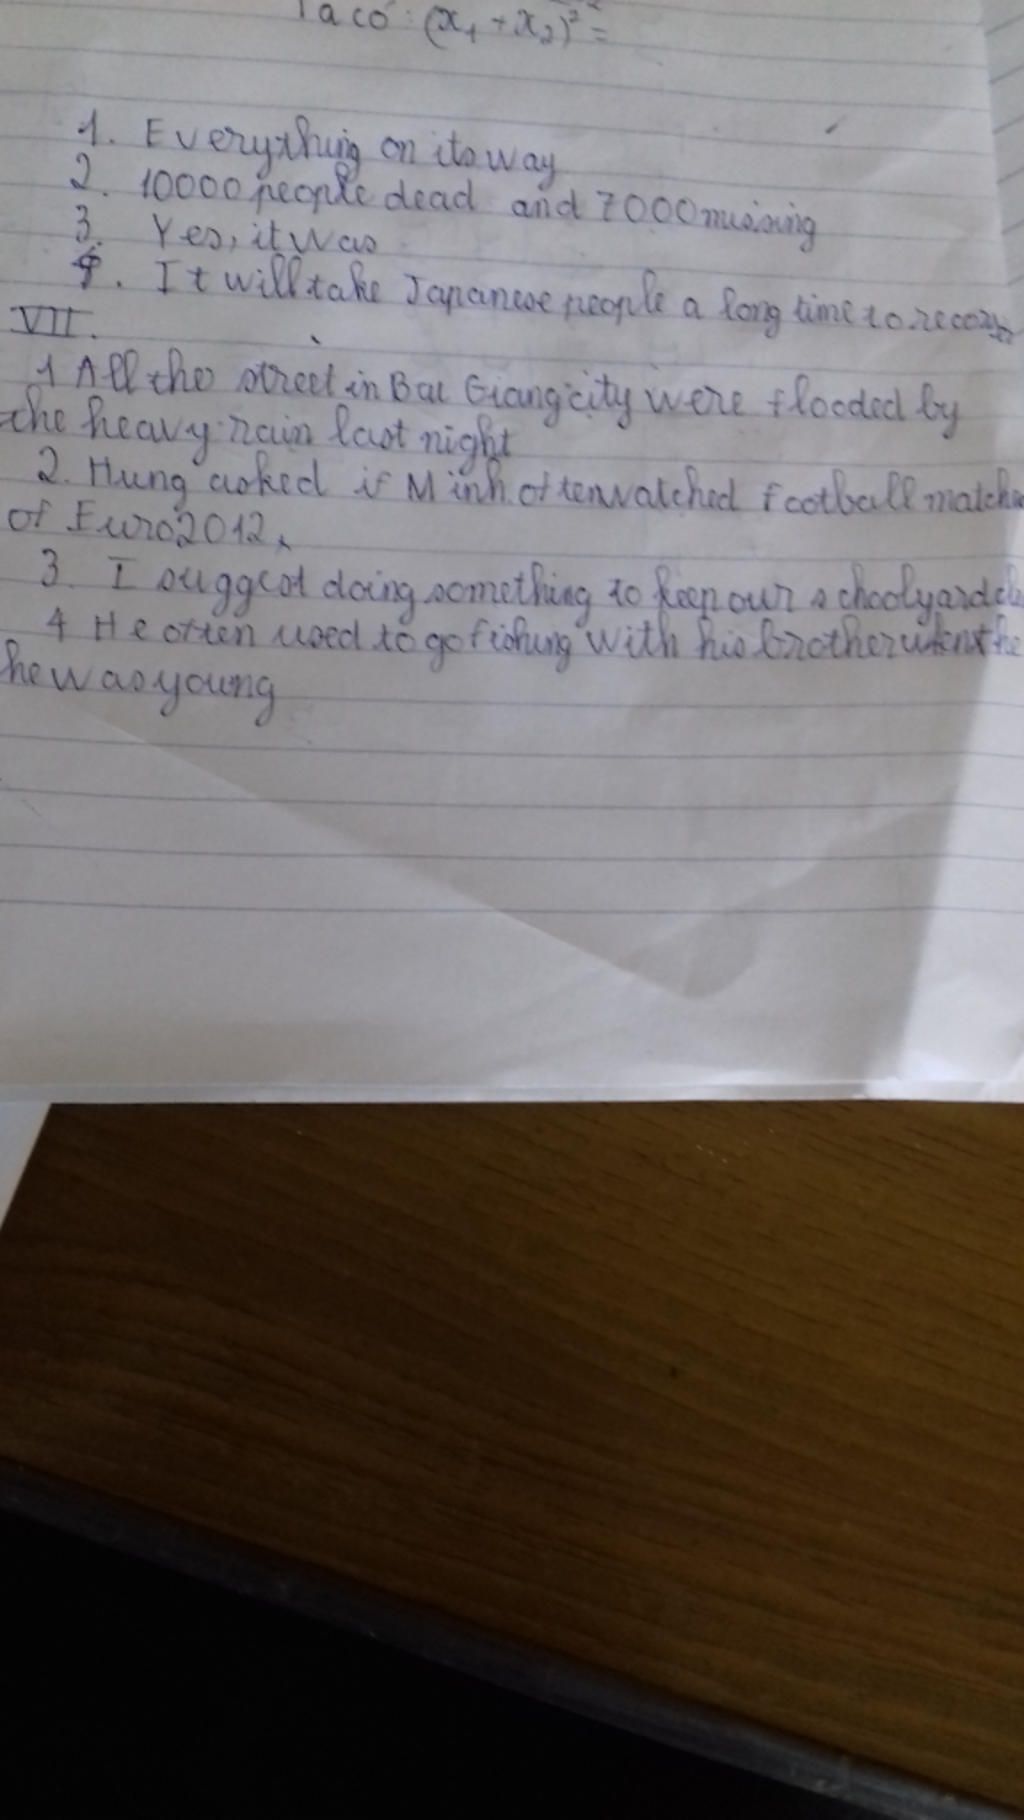 Ta có: (x₁ + x₂)² =
1. Everything on its way
2. 10000 people dead and 7000 missing
3. Yes, it was
4. It will take Japanese people a long time to
VII.
1 All the street in Bac Giang city were flooded by
the heavy rain last night
2. Hung asked if Minh often watched football
of Euro 2012.
3. I suggest doing something to keep our schoolyard
4 He often used to go fishing with his brother
he was young